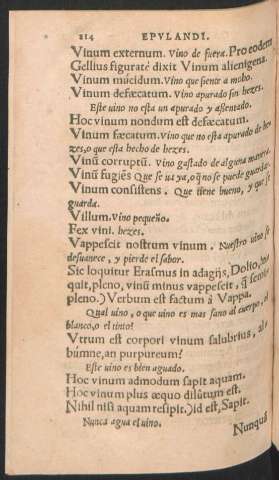 214 EPVLANDI.
Vinum externum. Vino de fuera. Pro eodem
Gellius figuratè dixit Vinum alienigena.
Vinum múcidum. Vino que fiente a moho.
Vinum defæcatum. Vino apurado sin hezes.
Este uino no esta un apurado y assentado.
Hoc vinum nondum est defæcatum.
Vinum fæcatum. Vino que no esta apurado de he
zes, o que esta hecho de hezes.
Vinũ corruptũ. Vino gastado de alguna manera.
Vinũ fugiẽs Que se ua ya, o q̃ no se puede guardar.
Vinum consistens. Que tiene bueno, y que se
guarda.
Villum. Vino pequeño.
Fex vini. hezes.
Vappescit nostrum vinum. Nuestro uino se
desuanece, y pierde el sabor.
Sic loquitur Erasmus in adagijs, Dolio,
quit, pleno, vinũ minus vappescit, q̃
pleno.) Verbum est factum à Vappa.
Qual uino, o que uino es mas sano al cuerpo, el
blanco, o el tinto?
Vtrum est corpori vinum salubrius, al
búmne, an purpureum?
Este uino es bien aguado.
Hoc vinum admodum sapit aquam.
Hoc vinum plus æquo dilûtum est.
Nihil nisi aquam resipit.) id est, Sapit.
Nunca agua el uino.
Nunquã